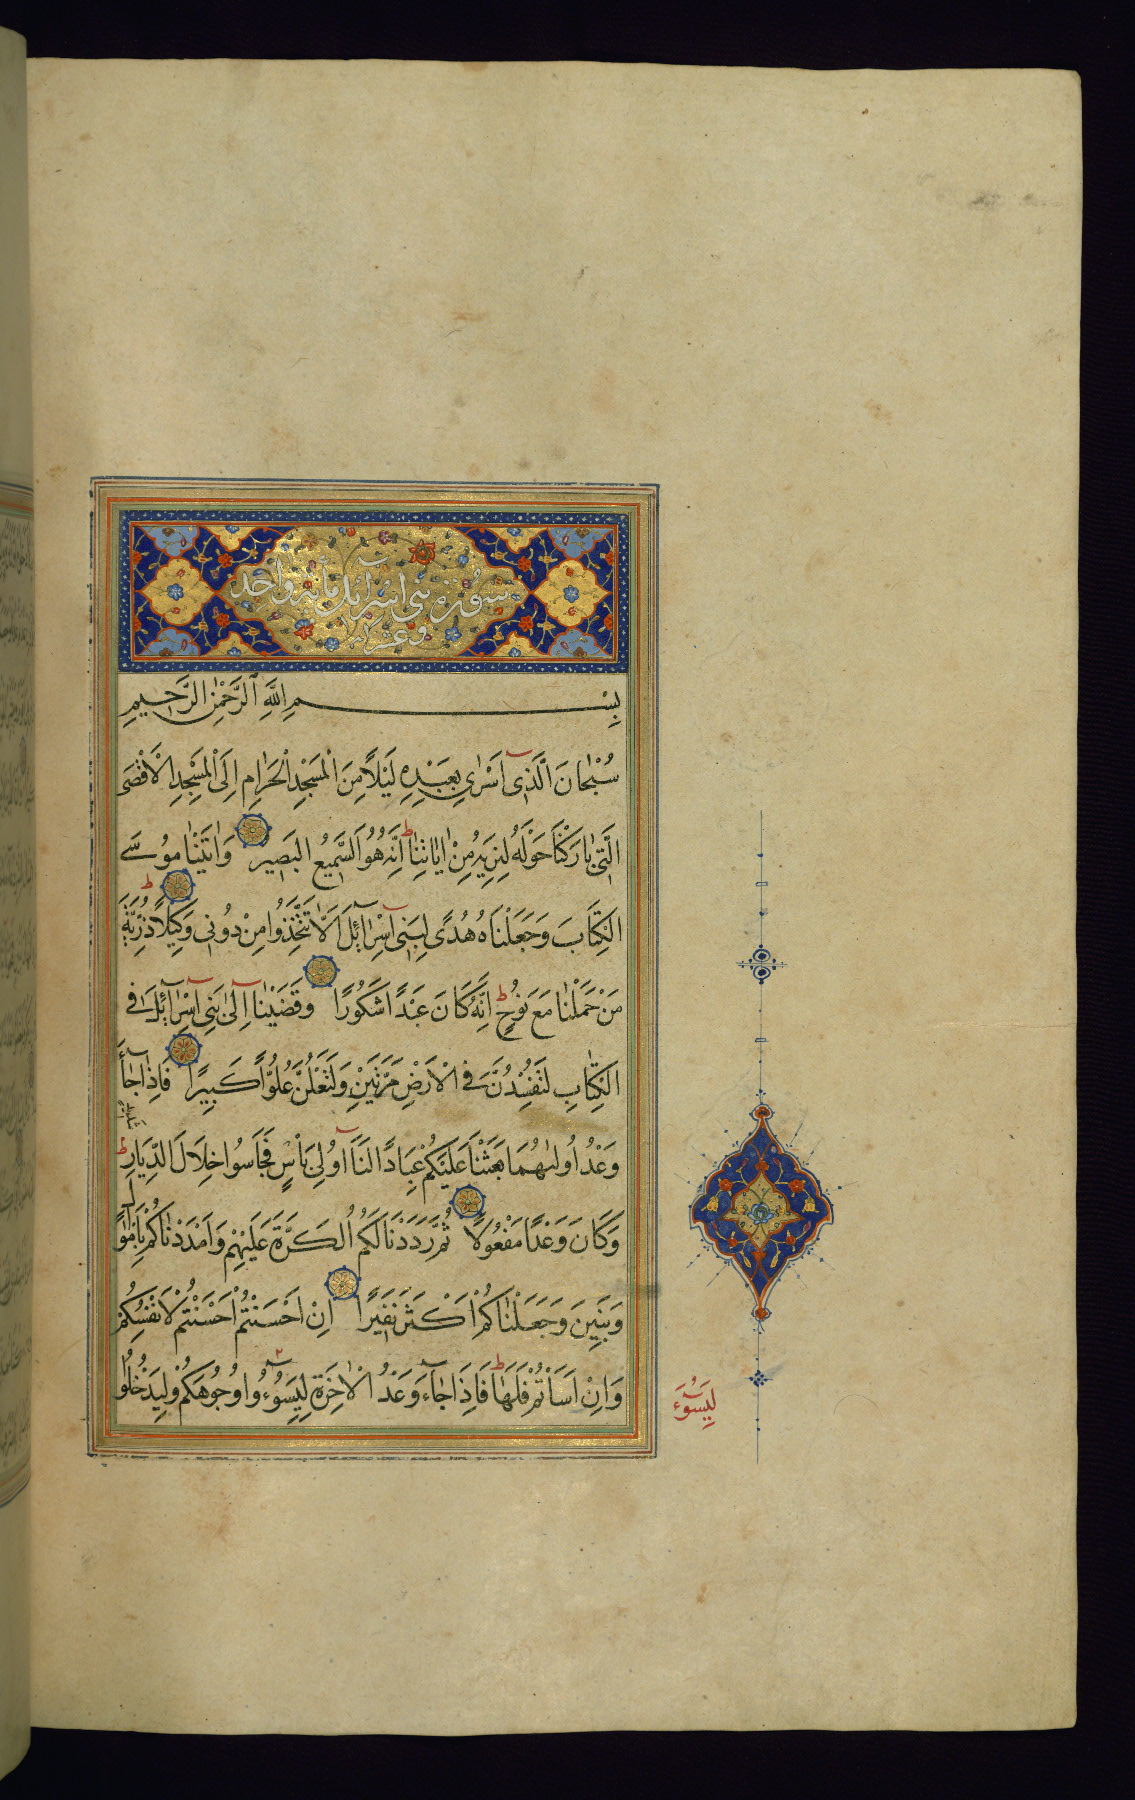 سورة بنی اسرآئل مائه واحد
وعشر
بِسْمِ اللَّهِ الرَّحْمٰنِ الرَّحِيمِ
سُبْحَانَ الَّذِىٓ اَسْرٰى بِعَبْدِهِ لَيْلًا مِنَ الْمَسْجِدِ الْحَرَامِ اِلَى الْمَسْجِدِ الْاَقْصَى
الَّتِى بَارَكْنَا حَوْلَهُ لِنُرِيَهُ مِنْ اٰيَاتِنَا ط اِنَّهُ هُوَ السَّمِيعُ الْبَصِير وَاٰتَيْنَا مُوسَى
الْكِتَابَ وَجَعَلْنَاهُ هُدًى لِبَنِىٓ اسْرَآئِلَ اَلَّا تَتَّخِذُوا مِنْ دُونِى وَكِيلًا ط ذُرِّيَّةَ
مَنْ حَمَلْنَا مَعَ نُوحٍ ط اِنَّهُ كَانَ عَبْدًا شَكُورًا وَقَضَيْنَا اِلٰى بَنِىٓ اسْرَآئِلَ فِى
الْكِتَابِ لَتُفْسِدُنَّ فِى الْاَرْضِ مَرَّتَيْنِ وَلَتَعْلُنَّ عُلُوًّا كَبِيرًا فَاِذَا جَآءَ
وَعْدُ اُولٰىهُمَا بَعَثْنَا عَلَيْكُمْ عِبَادًا لَنَآ اُولِى بَأْسٍ فَجَاسُوا خِلَالَ الدِّيَارِ ط
وَكَانَ وَعْدًا مَفْعُولًا ثُمَّ رَدَدْنَا لَكُمُ الْكَرَّةَ عَلَيْهِمْ وَاَمْدَدْنَاكُمْ بِاَمْوَالٍ
وَبَنِينَ وَجَعَلْنَاكُمْ اَكْثَرَ نَفِيرًا اِنْ اَحْسَنْتُمْ اَحْسَنْتُمْ لِاَنْفُسِكُمْ
وَاِنْ اَسَأْتُمْ فَلَهَا ط فَاِذَا جَآءَ وَعْدُ الْاٰخِرَةِ لِيَسُوءُوا وُجُوهَكُمْ وَلِيَدْخُلُوا
لِيَسُوٓءَ